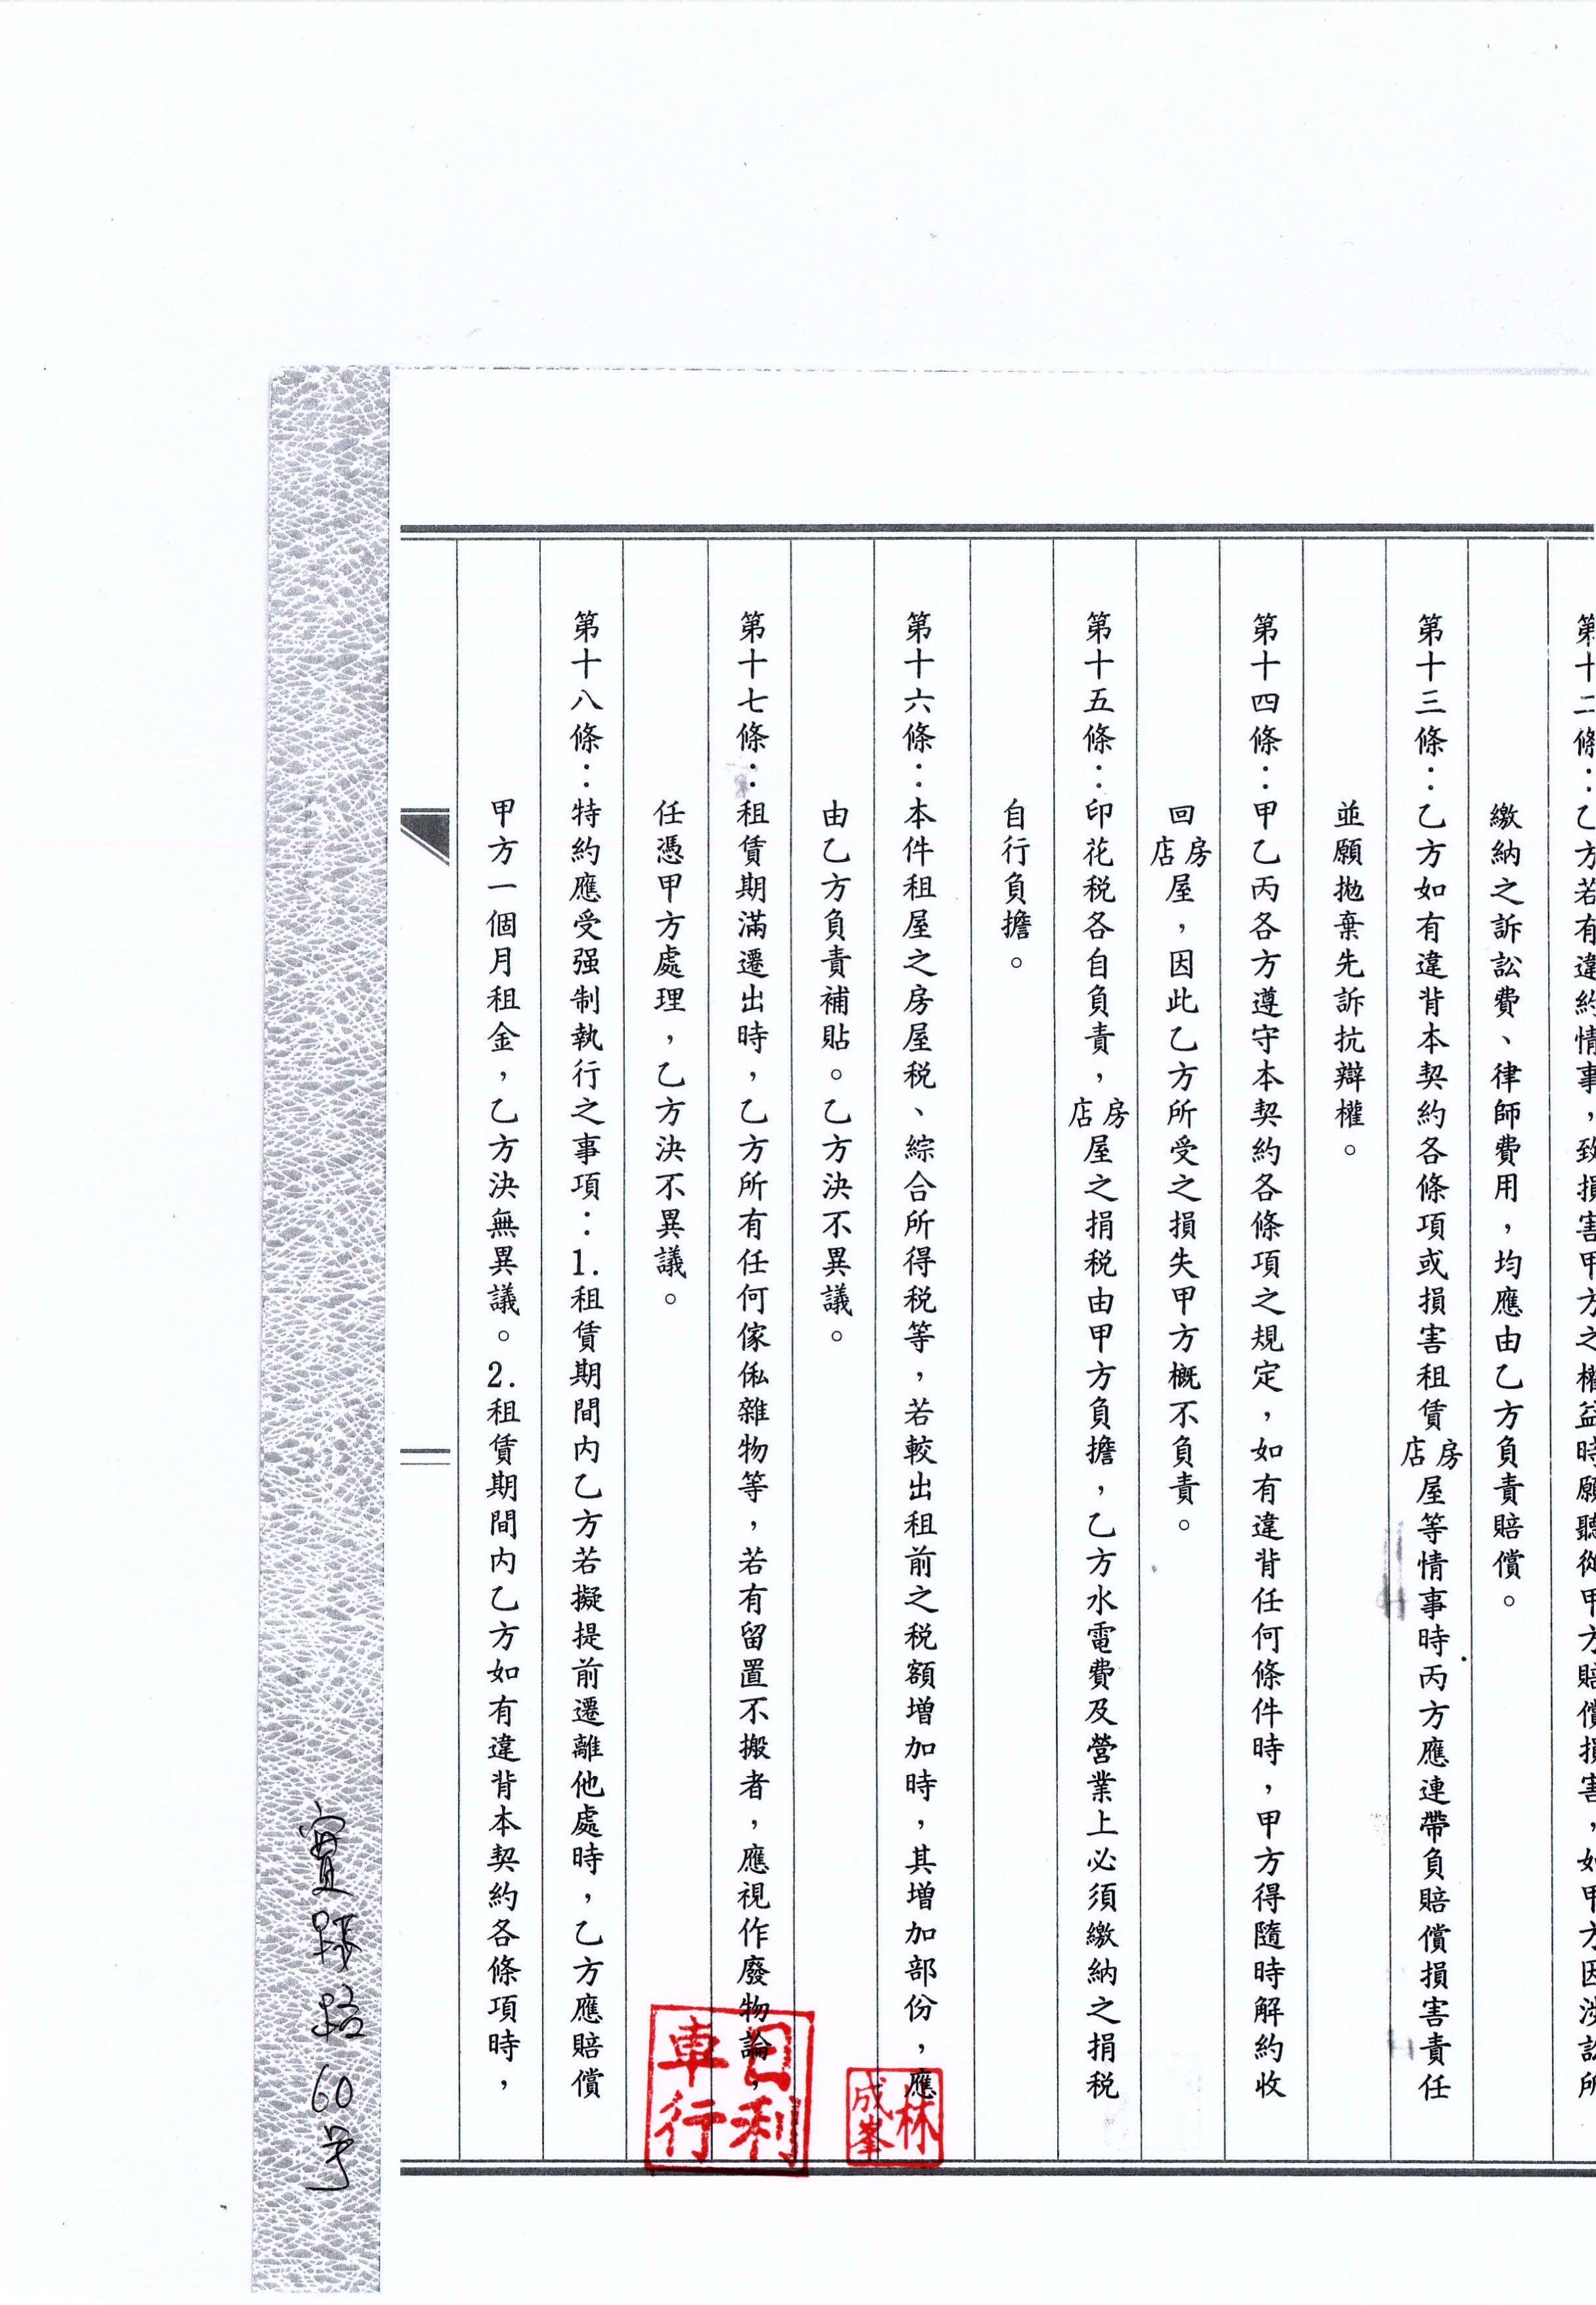 第十二條：乙方若有違約情事，致損害甲方之權益時願聽從甲方賠償損害，如甲方因涉訟所
繳納之訴訟費、律師費用，均應由乙方負責賠償。
第十三條：乙方如有違背本契約各條項或損害租賃房店屋等情事時丙方應連帶負賠償損害責任
並願拋棄先訴抗辯權。
第十四條：甲乙丙各方遵守本契約各條項之規定，如有違背任何條件時，甲方得隨時解約收
回房店屋，因此乙方所受之損失甲方概不負責。
第十五條：印花稅各自負責，房店屋之捐稅由甲方負擔，乙方水電費及營業上必須繳納之捐稅
自行負擔。
第十六條：本件租屋之房屋稅、綜合所得稅等，若較出租前之稅額增加時，其增加部份，應
由乙方負責補貼。乙方決不異議。
第十七條：租賃期滿遷出時，乙方所有任何傢俬雜物等，若有留置不搬者，應視作廢物論，
任憑甲方處理，乙方決不異議。
第十八條：特約應受强制執行之事項：1.租賃期間內乙方若擬提前遷離他處時，乙方應賠償
甲方一個月租金，乙方決無異議。2.租賃期間內乙方如有違背本契約各條項時，
林成峯
日利車行
路60号